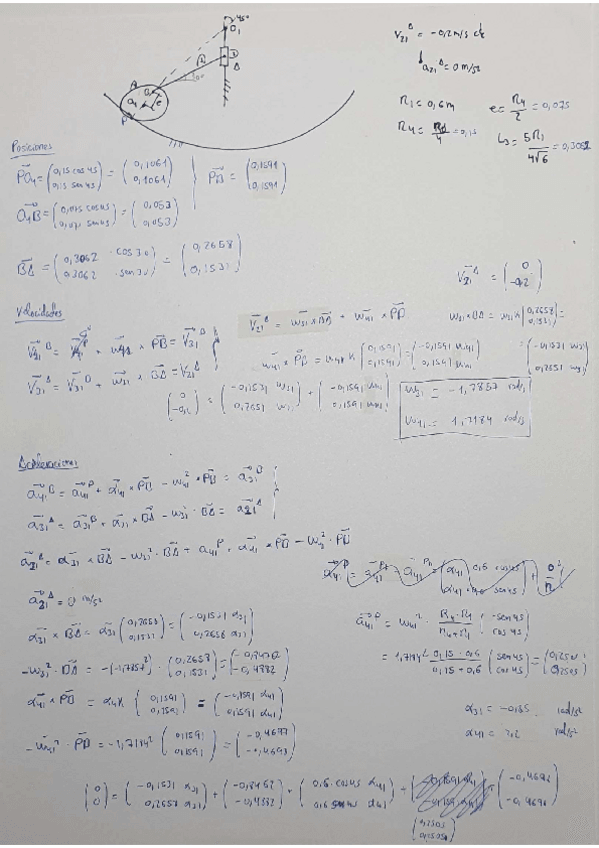 45°
O1
D
Δ
A
30°
P
e
V21^Δ = -0,2 m/s
a21^Δ = 0 m/s²
R1 = 0,6 m
e = R4/2 = 0,075
R4 = R1/4 = 0,15
L3 = 5R1/4√6 = 0,3062
Posiciones
PO4 = (0,15 cos 45 / 0,15 sen 45) = (0,1061 / 0,1061)
PB = (0,1591 / 0,1591)
O4B = (0,075 cos 45 / 0,075 sen 45) = (0,053 / 0,053)
BΔ = (0,3062 · cos 30 / 0,3062 · sen 30) = (0,2658 / 0,1531)
V21^Δ = (0 / -0,2)
Velocidades
V41^B = V41^P + ω41 × PB = V31^B
V31^Δ = V31^B + ω31 × BΔ = V21^Δ
V21^Δ = ω31 × BΔ + ω41 × PB
ω31 × BΔ = ω31 × (0,2658 / 0,1531) = (-0,1531 ω31 / 0,2651 ω31)
ω41 × PB = ω41 × (0,1591 / 0,1591) = (-0,1591 ω41 / 0,1591 ω41)
(0 / -0,2) = (-0,1531 ω31 / 0,2651 ω31) + (-0,1591 ω41 / 0,1591 ω41)
ω31 = -1,7857 rad/s
ω41 = 1,7184 rad/s
Aceleraciones
a41^B = a41^P + α41 × PB - ω41² × PB = a31^B
a31^Δ = a31^B + α31 × BΔ - ω31² · BΔ = a21^Δ
a21^Δ = α31 × BΔ - ω31² · BΔ + a41^P + α41 × PB - ω41² · PB
a21^Δ = 0 m/s²
α31 × BΔ = α31 (0,2658 / 0,1531) = (-0,1531 α31 / 0,2658 α31)
a41^P = ω41² · R4·R1/R4+R1 (sen 45 / cos 45)
= 1,7184² 0,15 · 0,6/0,15 + 0,6 (sen 45 / cos 45) = (0,2505 / 0,2505)
-ω31² · BΔ = -(-1,7857²) · (0,2658 / 0,1531) = (-0,8476 / -0,4882)
α41 × PB = α41 × (0,1591 / 0,1591) = (-0,1591 α41 / 0,1591 α41)
α31 = -0,185 rad/s²
α41 = 7,2 rad/s²
-ω41² · PB = -1,7184² (0,1591 / 0,1591) = (-0,4697 / -0,4697)
(0 / 0) = (-0,1531 α31 / 0,2658 α31) + (-0,8462 / -0,4882) + (0,6 · cos 45 α41 / 0,6 sen 45 α41) + (-0,4696 / -0,4696)
(0,2505 / 0,2505)